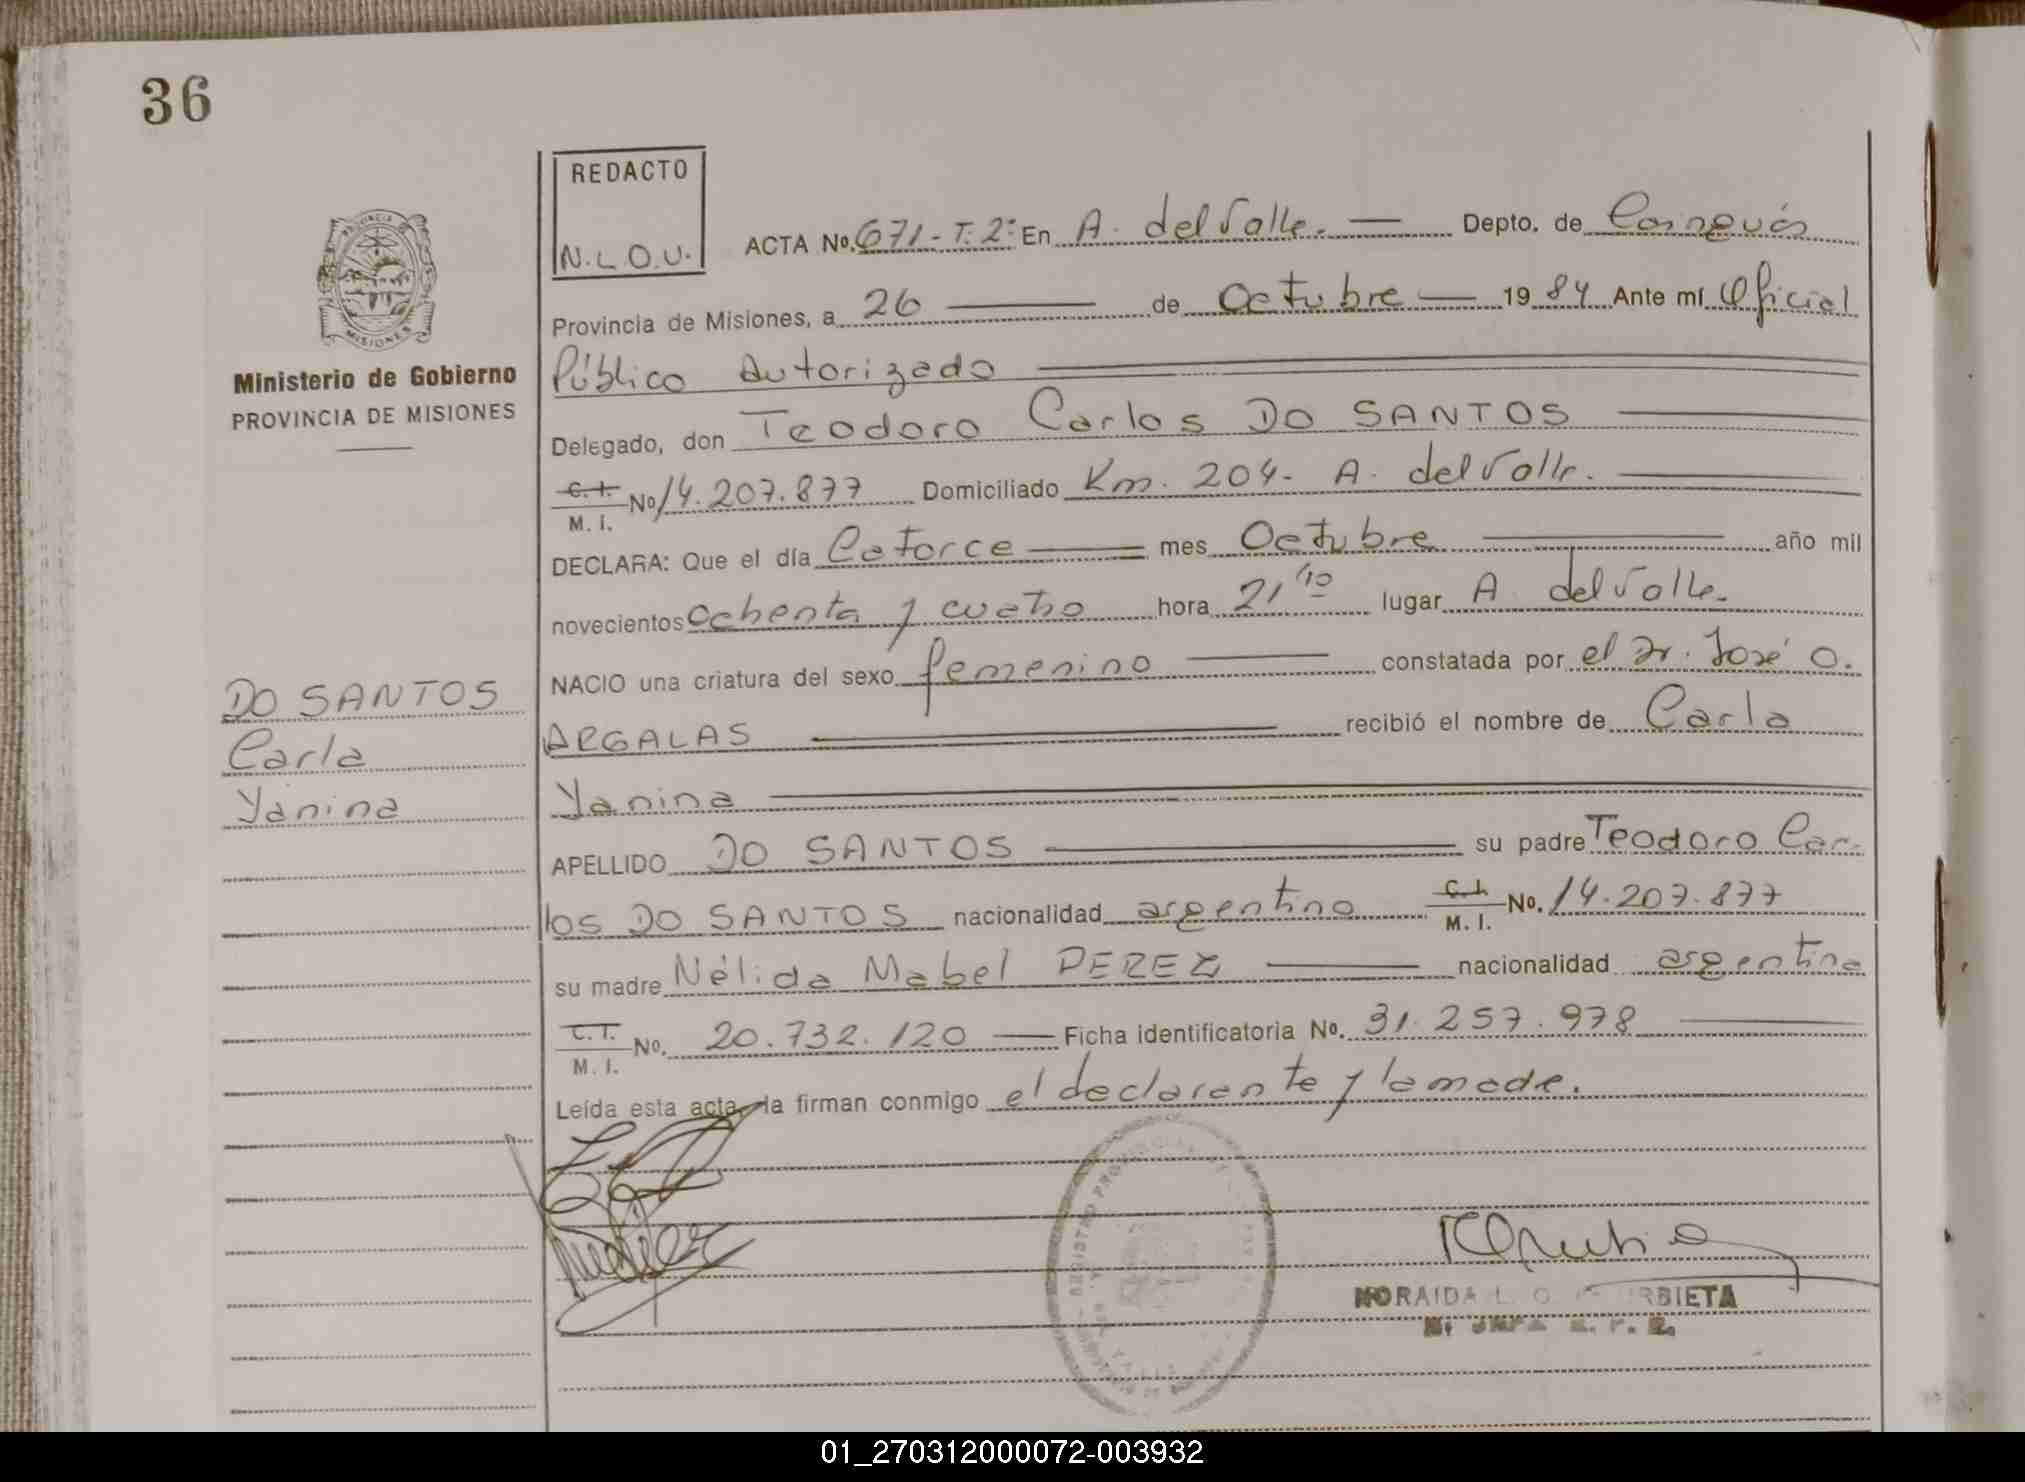 36
REDACTO
N.L.O.U.
ACTA No. 671-T: 2º En A. del Valle. Depto. de Cainguás
Provincia de Misiones, a 26 de Octubre 1984 Ante mí Oficial
Público Autorizado
Delegado, don Teodoro Carlos DO SANTOS
C. I. M. I. No 14.207.877 Domiciliado Km. 204- A. del Valle.
DECLARA: Que el día Catorce mes Octubre año mil
novecientos ochenta y cuatro hora 21 10 lugar A. del Valle.
NACIO una criatura del sexo femenino constatada por el Dr. José O.
ARGALAS recibió el nombre de Carla
Yanina
APELLIDO DO SANTOS su padre Teodoro Car-
los DO SANTOS nacionalidad argentino C. I. M. I. No. 14.207.877
su madre Nélida Mabel PEREZ nacionalidad argentina
C. I. M. I. No. 20.732.120 Ficha identificatoria No. 31.257.978
Leída esta acta, la firman conmigo el declarante y la madre.
PROVINCIA
MISIONES
Ministerio de Gobierno
PROVINCIA DE MISIONES
DO SANTOS
Carla
Yanina
REGISTRO
NORAIDA L. O. URBIETA
01_270312000072-003932